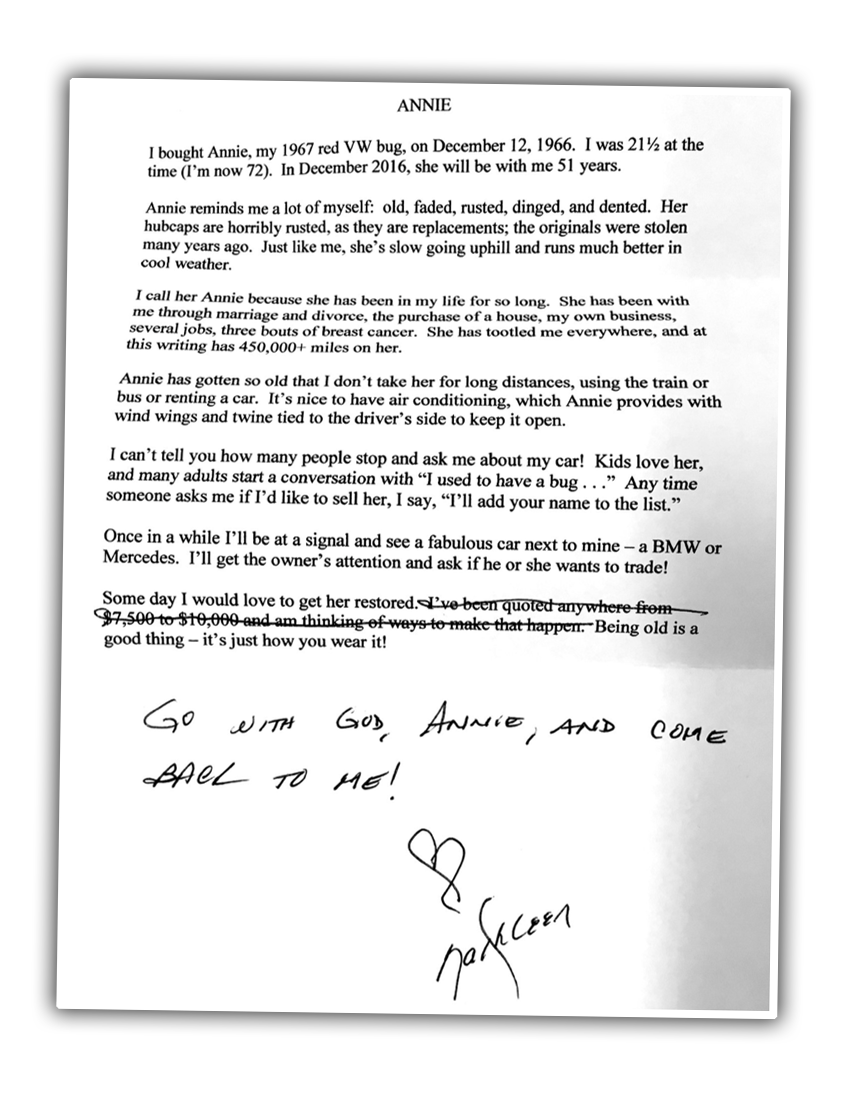 ANNIE
I bought Annie, my 1967 red VW bug, on December 12, 1966. I was 21½ at the
time (I'm now 72). In December 2016, she will be with me 51 years.
Annie reminds me a lot of myself: old, faded, rusted, dinged, and dented. Her
hubcaps are horribly rusted, as they are replacements; the originals were stolen
many years ago. Just like me, she's slow going uphill and runs much better in
cool weather.
I call her Annie because she has been in my life for so long. She has been with
me through marriage and divorce, the purchase of a house, my own business,
several jobs, three bouts of breast cancer. She has tootled me everywhere, and at
this writing has 450,000+ miles on her.
Annie has gotten so old that I don't take her for long distances, using the train or
bus or renting a car. It's nice to have air conditioning, which Annie provides with
wind wings and twine tied to the driver's side to keep it open.
I can't tell you how many people stop and ask me about my car! Kids love her,
and many adults start a conversation with “I used to have a bug . . .” Any time
someone asks me if I'd like to sell her, I say, “I'll add your name to the list.”
Once in a while I'll be at a signal and see a fabulous car next to mine – a BMW or
Mercedes. I'll get the owner's attention and ask if he or she wants to trade!
Some day I would love to get her restored. I've been quoted anywhere from
$7,500 to $10,000 and am thinking of ways to make that happen. Being old is a
good thing – it's just how you wear it!
GO WITH GOD, ANNIE, AND COME
BACK TO ME!
Kathleen